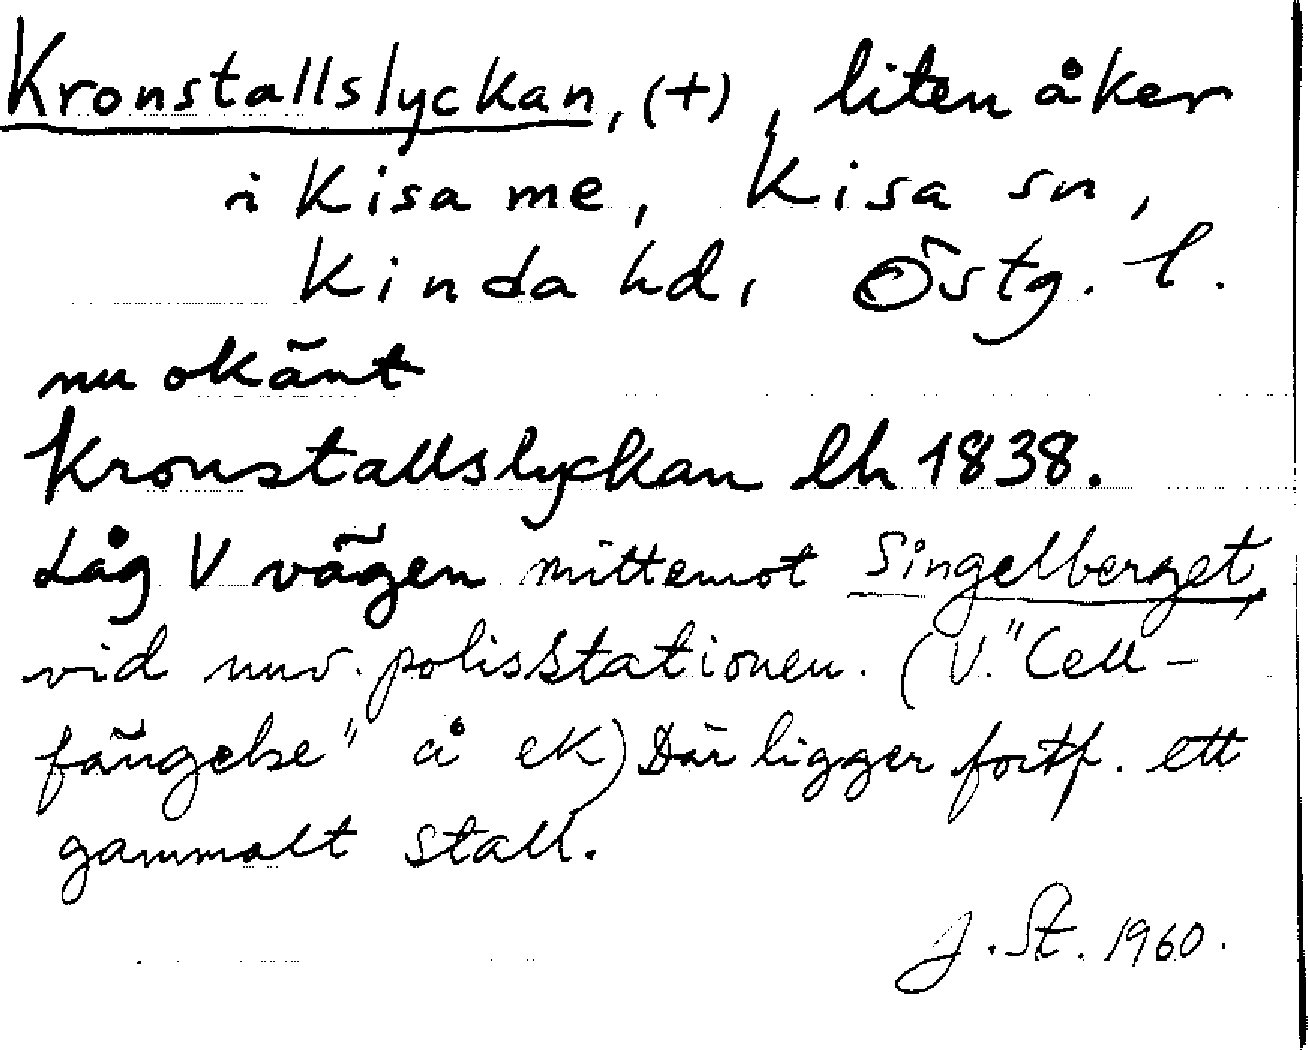 Kronstallslyckan, (+), liten åker
i Kisa me, Kisa sn,
Kinda hd, Östg. l.
nu okänt
Kronstallslyckan lh 1838.
Låg V vägen mittemot Singelberget,
vid nuv. polisstationen. (V. "Cell-
fängelse" å ek) Där ligger fortf. ett
gammalt stall.
J. St. 1960.